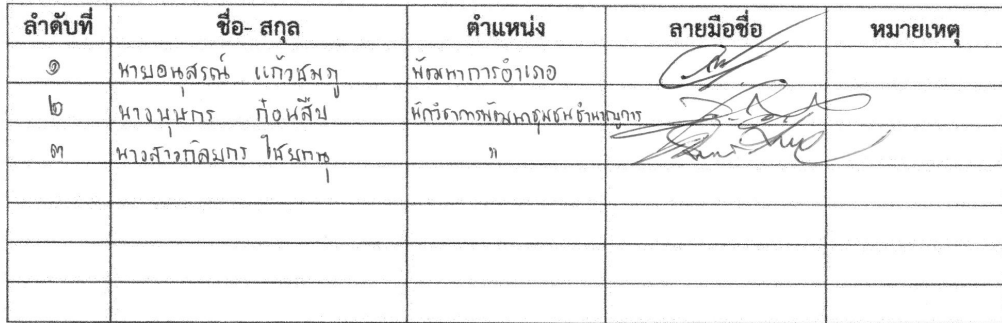 ลำดับที่ ชื่อ- สกุล ตำแหน่ง ลายมือชื่อ หมายเหตุ
๑ นายอนุสรณ์ แก้วชมภู พัฒนาการอำเภอ
๒ นางนุษกร ก้อนสืบ นักวิชาการพัฒนาชุมชนชำนาญการ
๓ นางสาวกัลยกร ไชยกนุ "